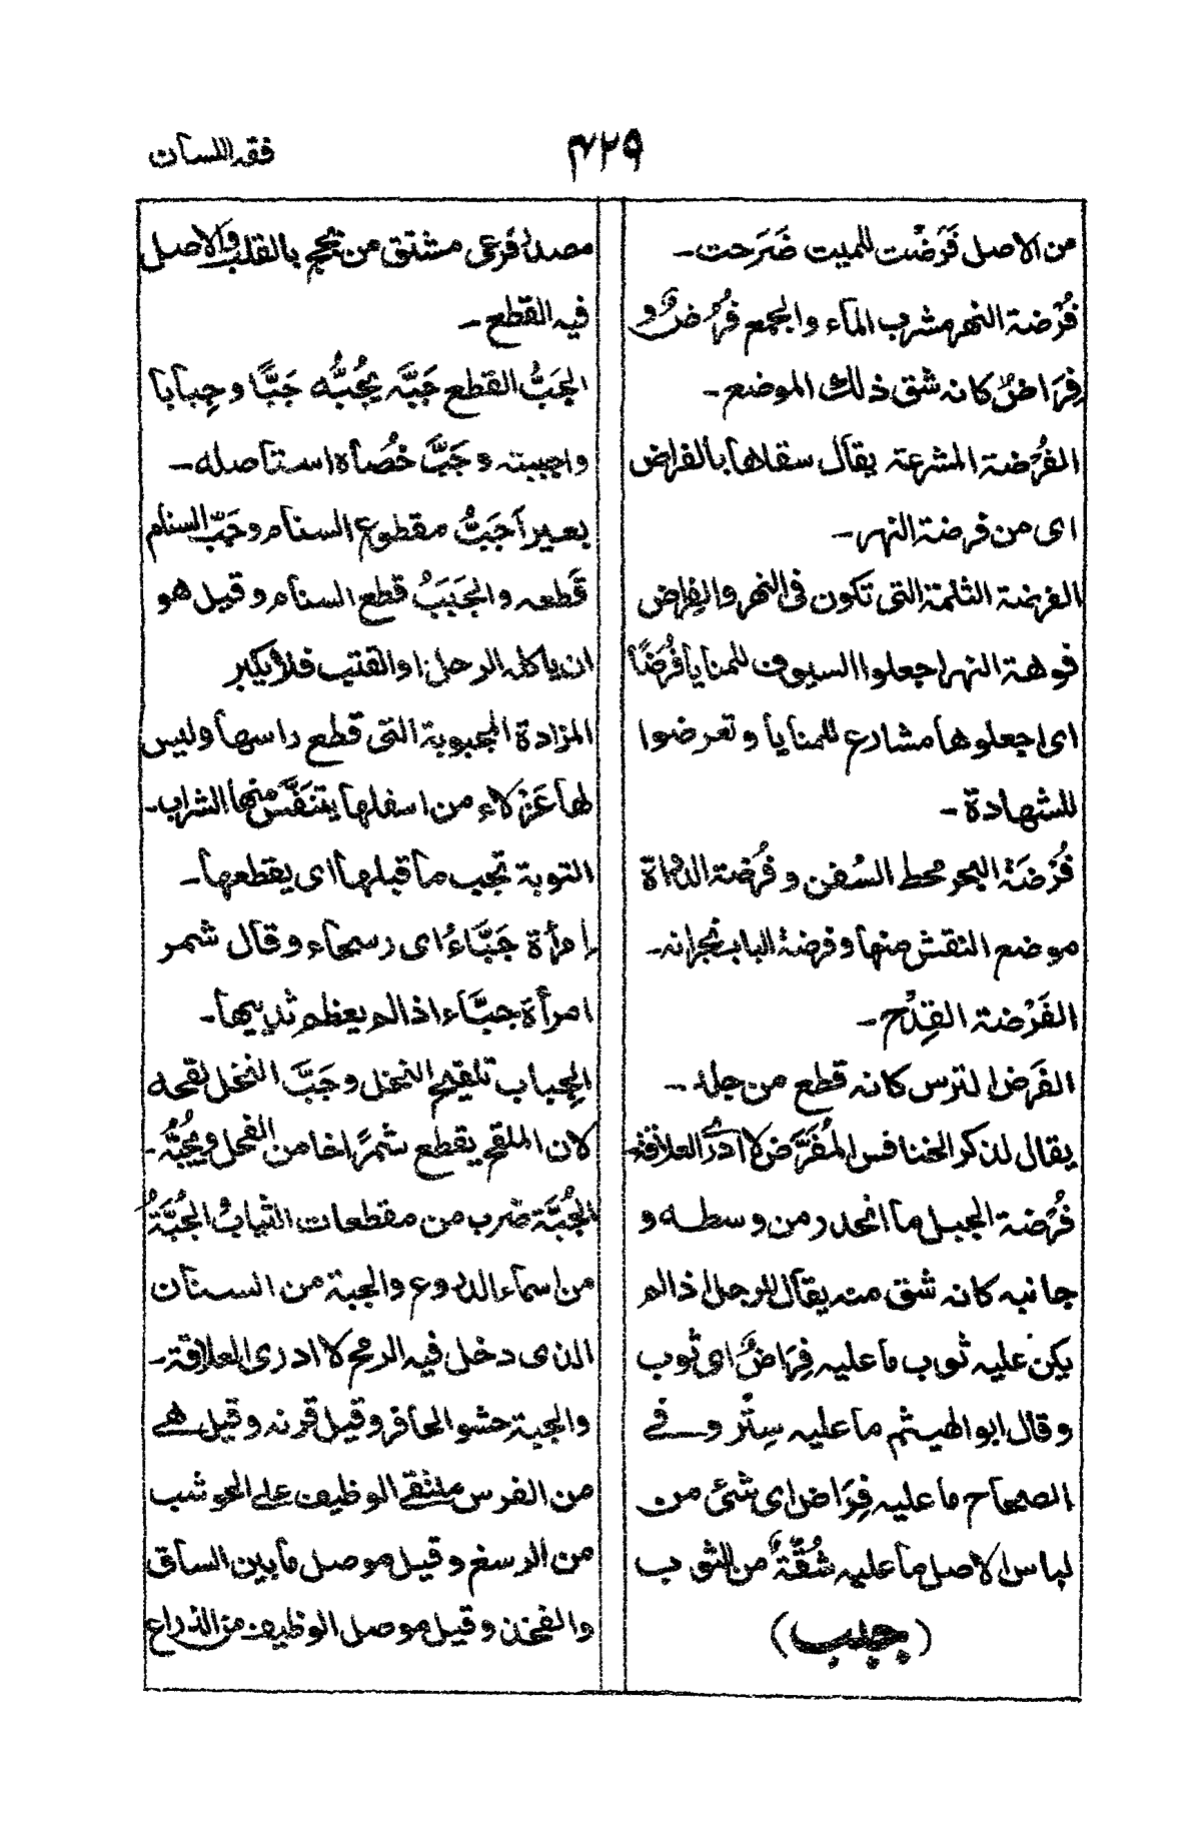 فقه اللسان
۴۲۹
من الاصل فَرَضْت للميت ضَرَحت ـ
فُرْضة النهر مشرب الماء والجمع فُرَضٌ و
فِرَاضٌ كانه شق ذلك الموضع ـ
الفُرْضة المشرعة يقال سقلاها بالفراض
اى من فرضة النهر ـ
الفرضة الثلمة التى تكون فى النهر والفِراض
فوهة النهر اجعلوا السيوف للمنايا فُرَضًا
اى اجعلوها مشارع للمنايا وتعرضوا
للشهادة ـ
فُرْضَة البحر محط السُفن وفُرْضة الدواة
موضع النقش منها وفرضة الباب نجرانه ـ
الفَرْضة القِدْح ـ
الفَرَض الترس كانه قطع من جلد ـ
يقال لذكر الخنافس المُفَرَّض لا ادرى العلاقة
فُرْضة الجبل ما انحدر من وسطه و
جانبه كانه شق منه يقال للرجل اذا لم
يكن عليه ثوب ما عليه فِرَاضٌ اى ثوب
وقال ابو الهيثم ما عليه سِتْر وفے
الصحاح ما عليه فِرَاض اى شئ من
لباس الاصل ما عليه شُقَّةٌ من الثوب
(جبب)
مصدر فرعى مشتق من بالقلب والاصل
فيه القطع ـ
الجَبُّ القطع جَبَّه يَجُبُّه جَبًّا وجِبابا
واجببته وجَبَّ خُصاه استاصله ـ
بعير اَجَبُّ مقطوع السنام وجَبّ السنام
قَطعه والجَبَبُ قطع السنام وقيل هو
ان ياكله الرحل او القتب فلا يكبر
المزادة المجبوبة التى قطع راسها وليس
لها عَزْلاء من اسفلها يتنفَّس منها الشراب ـ
التوبة تجب ما قبلها اى يقطعها ـ
إمرأة جَبَّاءُ اى رسحاء وقال شمر
امرأة جبَّاء اذا لم يعظم ثدييها ـ
الجِباب تلقيح النخل وجَبَّ النخل لقحه
لان الملقح يقطع شمراخا من الفحل ويجُبُّه ـ
الجُبَّة ضرب من مقطعات الثياب الجُبَّةُ
من اسماء الدروع والجبة من السنان
الذى دخل فيه الرمح لا ادرى العلاقة ـ
والجبة حشو الحافر وقيل قرنه وقيل هے
من الفرس ملتقے الوظيف علے الحوشب
من الرسغ وقيل موصل ما بين الساق
والفخذ وقيل موصل الوظيف من الذراع